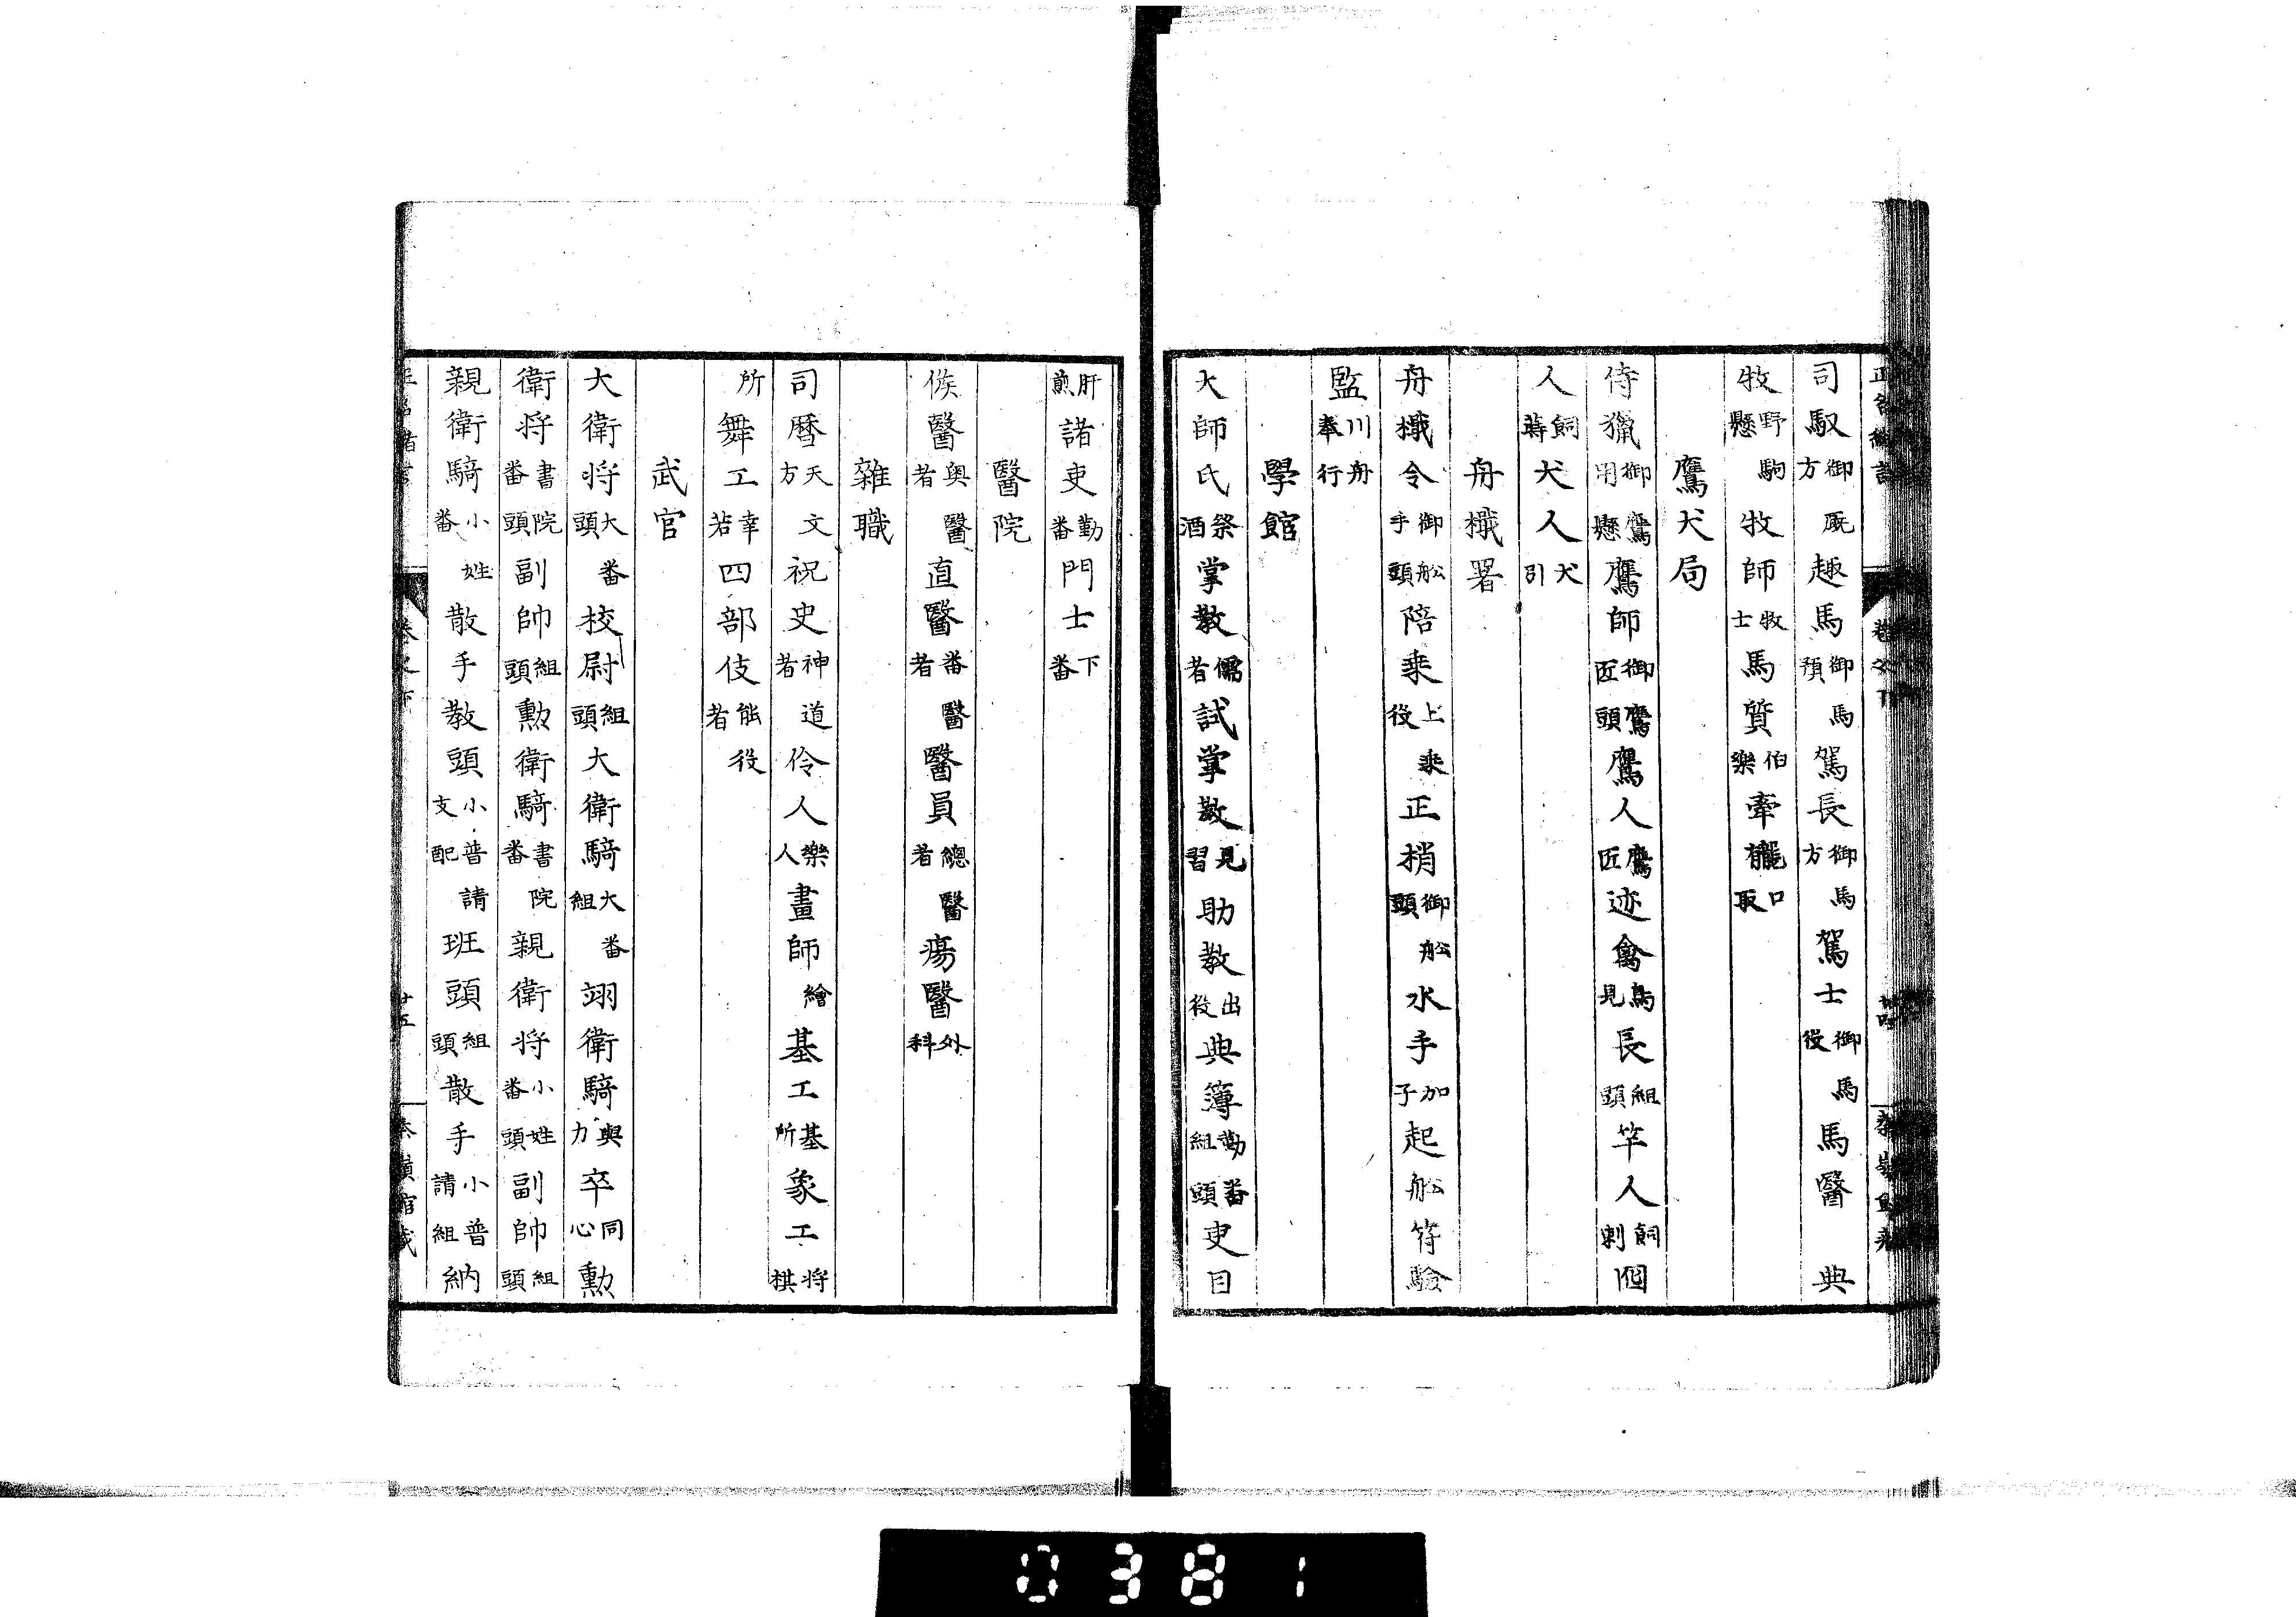 司馭御厩方趣馬御馬預駕長御馬方駕士御馬役馬醫　典
牧野駒懸牧師牧士馬質伯樂牽櫳口取
鷹犬局
侍獵御鷹用懸鷹師御鷹匠頭鷹人鷹匠迹禽鳥見長組頭竿人飼刺個
人飼蒔犬人犬引
舟檝署
舟檝令御舩手頭陪乘上乘役正梢御舩頭水手加子起舩符驗
監川舟奉行
學館
大師氏祭酒掌教儒者試掌教見習助教出役典簿勤番組頭吏目
肝煎諸吏勤番門士下番
醫院
候醫奥醫者直醫番醫者醫員總醫者瘍醫外科
雜職
司暦天文方祝史神道者伶人樂人畫師繪基工基所象工将棋
所舞工幸若四部伎能役者
武官
大衛将大番頭校尉組頭大衛騎大番組翊衛騎與力卒同心勳
衛将書院番頭副帥組頭勳衛騎書院番親衛将小姓番頭副帥組頭
親衛騎小姓番散手教頭小普請支配班頭組頭散手小普請組納
廿五
0381